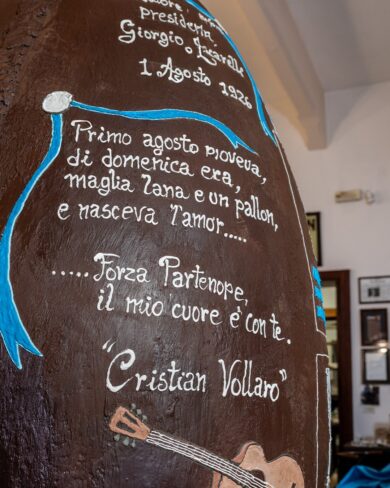 presiderin
Giorgio
1 Agosto 1926
Primo agosto pioveva,
di domenica era,
maglia lana e un pallon,
e nasceva l'amor.....
.....Forza Partenope,
il mio cuore e' con te.
"Cristian Vollaro"